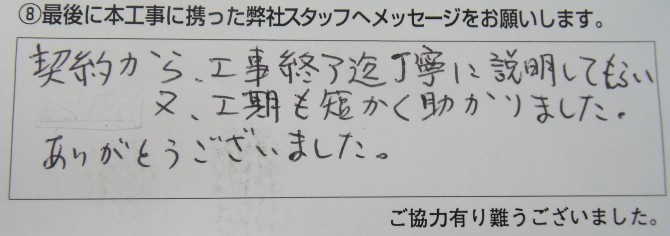 ⑧最後に本工事に携った弊社スタッフへメッセージをお願いします。
契約から、工事終了迄丁寧に説明してもらい
又、工期も短かく助かりました。
ありがとうございました。
ご協力有り難うございました。